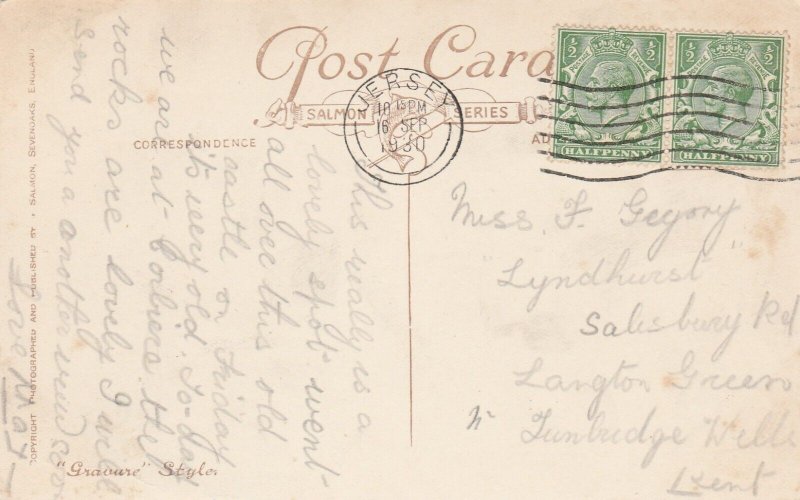 Post Card
SALMON SERIES
CORRESPONDENCE
JERSEY
10 15 PM
16 SEP
1930
½ ½
POSTAGE
HALFPENNY
½ ½
POSTAGE
HALFPENNY
This really is a
lovely spot went
all over this old
castle on Friday
it's very old. To-day
we are at Corbiere the
rocks are lovely I will
send you a another view soon
Love
Miss F. Gegory
"Lyndhurst"
Salisbury Rd
Langton Green
Nr Tunbridge Wells
Kent
"Gravure" Style
COPYRIGHT PHOTOGRAPHED AND PUBLISHED BY J SALMON, SEVENOAKS, ENGLAND